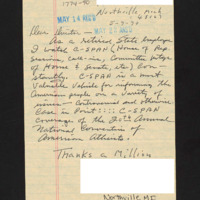 1774-90
Northville, Mich
MAY 14 RECD
48167
5-7-90
Dear Sirs -
MAY 21 RECD
As a retired State Employee
I watch C-SPAN (House of Rep.
sessions, call-ins, Committee mtgs
of House & Senate, etc) Con-
stantly. C-SPAN is a most
Valuable Vehicle for informing the
American people on a variety of
issues - Controversial and otherwise
Case in Point:::: C-SPAN
coverage of the 20th Annual
National Convention of
American Atheists.
Thanks a Million
Northville MI